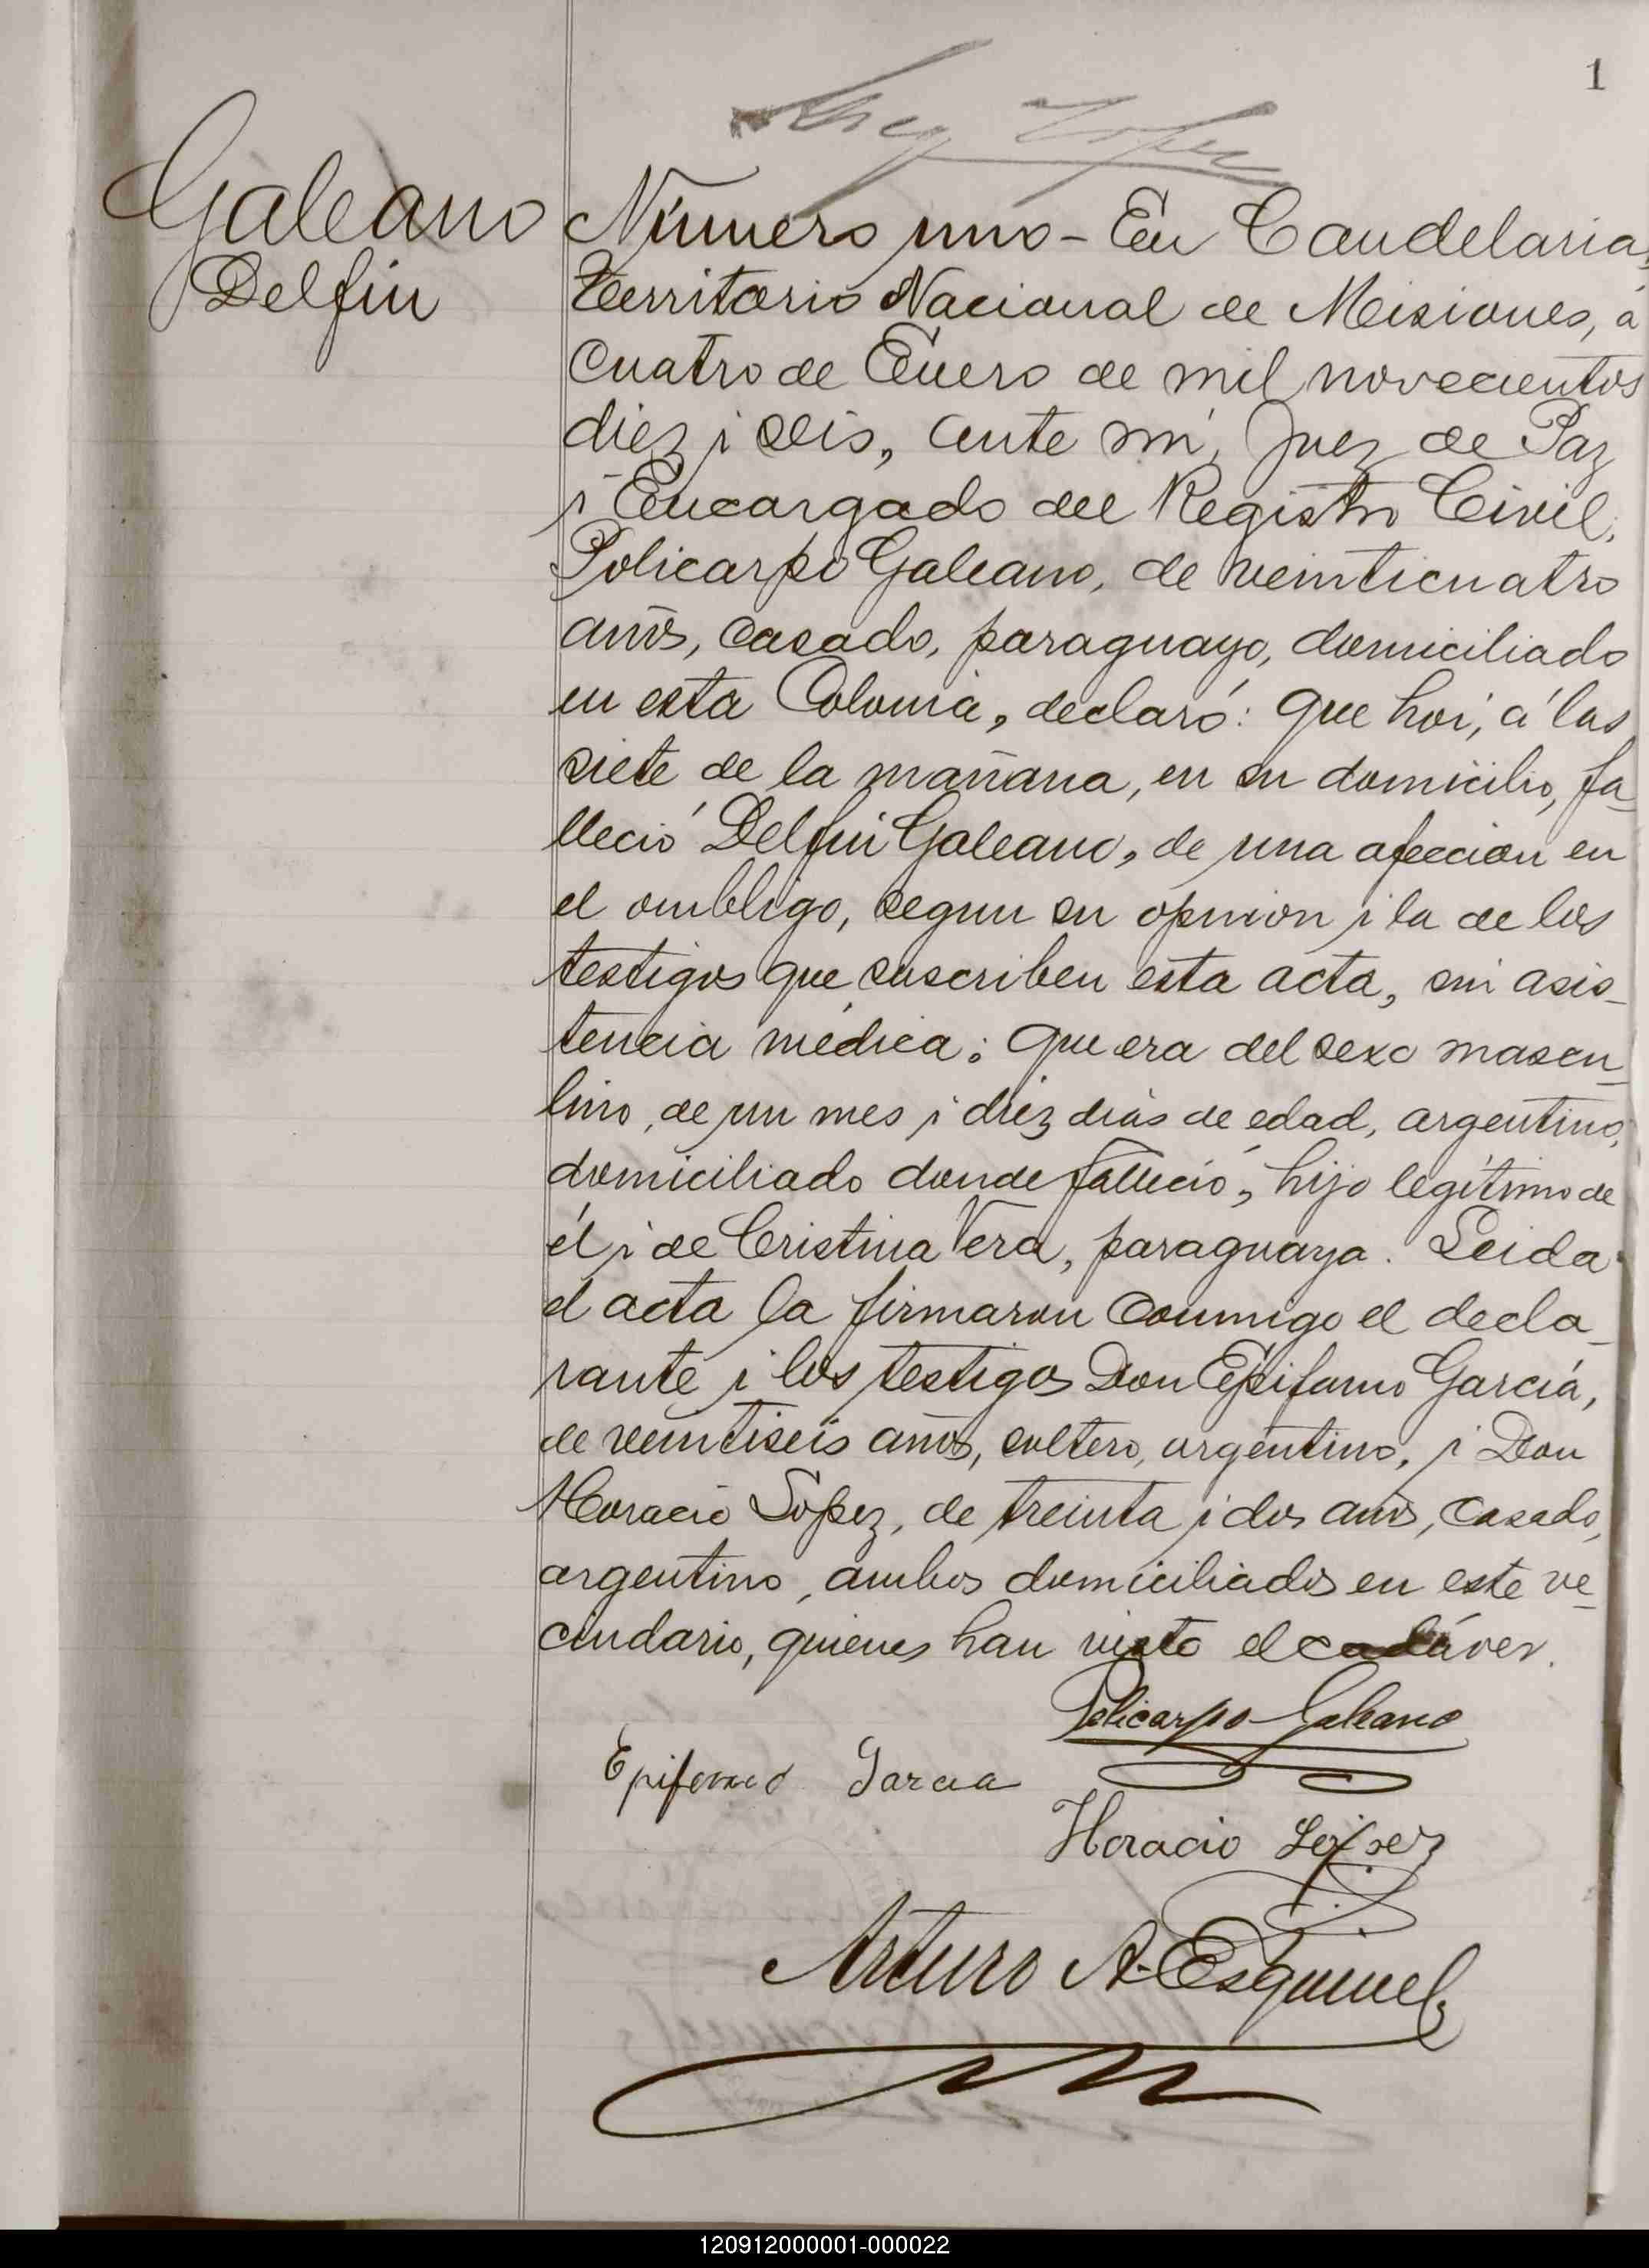 1
Galeano
Delfin
Número uno - En Candelaria,
Territorio Nacional de Misiones, á
cuatro de Enero de mil novecientos
diez i seis, ante mí, Juez de Paz
i Encargado del Registro Civil,
Policarpo Galeano, de veinticuatro
años, casado, paraguayo, domiciliado
en esta Colonia, declaró: que hoi, á las
siete de la mañana, en su domicilio, fa-
lleció Delfin Galeano, de una afeccion en
el ombligo, segun su opinion i la de los
testigos que suscriben esta acta, sin asis-
tencia médica; que era del sexo mascu-
lino, de un mes i diez dias de edad, argentino,
domiciliado donde falleció, hijo legítimo de
él i de Cristina Vera, paraguaya. Leida
el acta la firmaron conmigo el decla-
rante i los testigos Don Epifanio García,
de veintiseis años, soltero, argentino, i Don
Horacio López, de treinta i dos años, casado,
argentino, ambos domiciliados en este ve-
cindario, quienes han visto el cadáver.
Policarpo Galeano
Epifanio Garcia
Horacio López
Arturo A. Esquivel
120912000001-000022